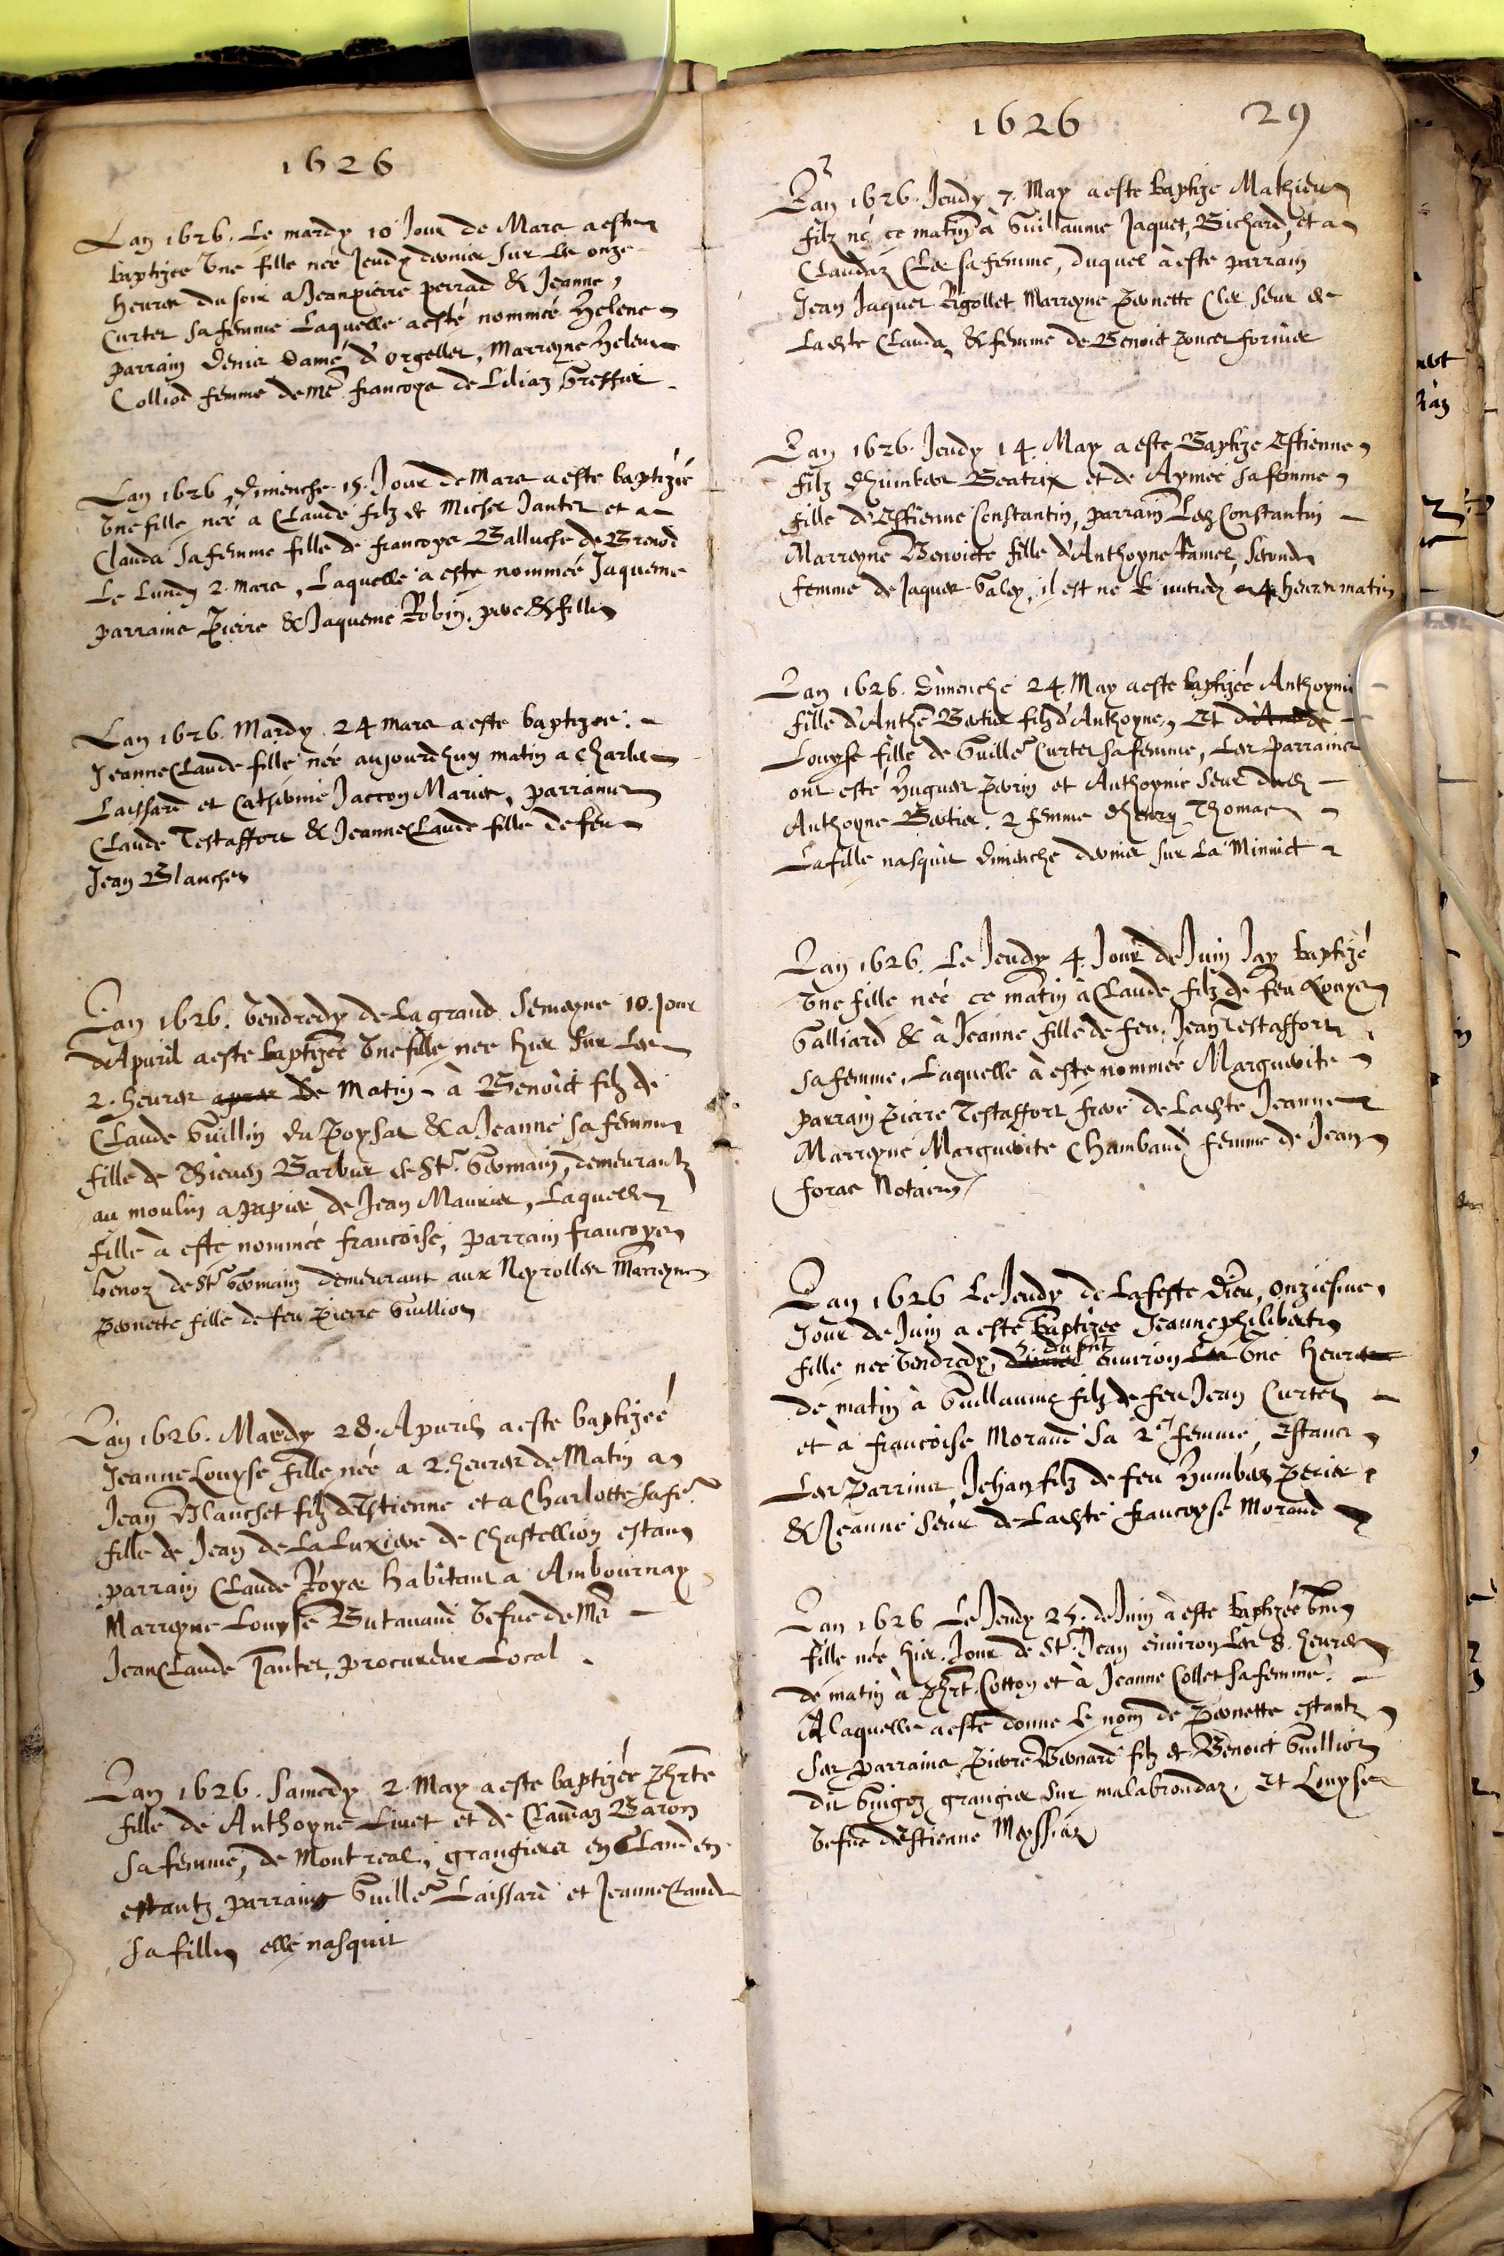 1626
Lan 1626. Le mardy 10 Jour de Mars a este
baptizee Une fille née Jeudy dernier sur les onze
heures du soir a Jeanpierre perrad & Jeanne
Curtet sa femme Laquelle a esté nommée Helene
parrain Denis Dame d'orgellet, Marreyne Helene
Colliod femme de Me francoys de Liliaz Greffier.
Lan 1626, Dimenche 15. Jour de Mars a este baptizeé
Une fille neé a Claude filz de Michel Jantet et a
Clauda sa femme fille de francoys Balluche de Brenod
Le Lundy 2. mars, Laquelle a este nommeé Jaqueme
parrains Pierre & Jaqueme Robin, pere & fille
Lan 1626. Mardy 24 mars a este baptizee.
JeanneClaude fille née aujourdhuy matin a Charles
Laissard et Catherine Jacron Mariés, parrains
Claude Testaffort & JeanneClaude fille de feu
Jean Blanchet
Lan 1626. Vendredy de La grand Semeyne 10. jour
dApuril a este baptizeé Une fille nee hier sur Les
2. heures apres de Matin à Benoict filz de
Claude Guillin du Poysat & a Jeanne sa femme
fille de Barbier de St. Germain, demeurantz
au moulin a papier de Jean Maurier, Laquelle
fille à esté nommée francoise, parrain francoys
Genoz de St Germain demeurant aux Neyrolles Marreyne
Pernette fille de feu Pierre Guillion
Lan 1626. Mardy 28. Apuril a este baptizeé
JeanneLouyse fille née a 2. heures de Matin a
Jean Blanchet filz dEstienne et a Charlotte sa fe.
fille de Jean de La Luxiere de Chastellion estans
parrain Claude Royer habitant a Ambournay
Marreyne Louyse Butavand Vefue de Me
JeanClaude Jantet, procureur Local.
Lan 1626. Samedy 2. May a este baptizée Phrte
fille de Anthoyne Liuet et de Claudaz Baron
sa femme, de Montreal, grangiers en Clauden
estantz parrains Guille Laissard et JeanneClaude
sa fille elle nasquit
1626 29
Lan 1626. Jeudy 7. May a este baptize Mathieu
filz né ce matin à Guillaume Jaquet, Bichard, et a
Claudaz Cler sa femme, duquel à este parrain
Jean Jaques Rigollet Marreyne Pernette Cler seur de
Ladicte Clauda, & femme de Benoict Poncet fornier
Lan 1626. Jeudy 14. May a este Baptize Estienne
filz dhumbert Beatrix et de Aymée sa femme
fille dEstienne Constantin, parrain Constantin
Marreyne Benoicte fille d'Anthoyne Ramel, Seconde
femme de Jaques Valey, il est né le 4 heures matin
Lan 1626. Dimenche 24. May a este baptizée Anthoynie
fille d'Anthe Bertier filz d'Anthoyne, Et
Louyse fille de Guille Curtet sa femme, Les parrains
ont esté Hugues Perrin et Anthoynie seur dudict
Anthoyne Bertier. 2 femme dhenry Thomas
La fille nasquit Dimenche dernier sur La Minuict
Lan 1626. Le Jeudy 4. Jour de Juin Jay baptizé
Une fille neé ce matin à Claude filz de feu Louys
Galliard & à Jeanne fille de feu Jean Testaffort
sa femme, Laquelle à este nommeé Marguerite
parrain Pierre Testaffort frere de Ladicte Jeanne
Marreyne Marguerite Chambaud femme de Jean
foras Notaire
Lan 1626 Le Jeudy de La feste Dieu, onziesme
Jour de Juin a esté baptizee Jeanne philiberte
fille nee Vendredy, 5. du pnt environ Les Une heures
de matin à Guillaume filz de feu Jean Curtet
et à francoise Morand sa 2e femme, Estanct
Les Parrins Jehan filz de feu Humbert Perier
& Jeanne seur de Ladicte francoyse Morand
Lan 1626 Le Jeudy 25. de Juin à este baptizée Une
fille née hier Jour de St. Jean environ Les 8. heures
de matin à Phrt. Cotton et à Jeanne Collet sa femme.
A laquelle a este donne le nom de Pernette estantz
Ses parrains Pierre Bernard filz de Benoict Guillion
dit Guigoz grangier sur malabrondaz, Et Louyse
Vefue dEstienne Meyssiaz